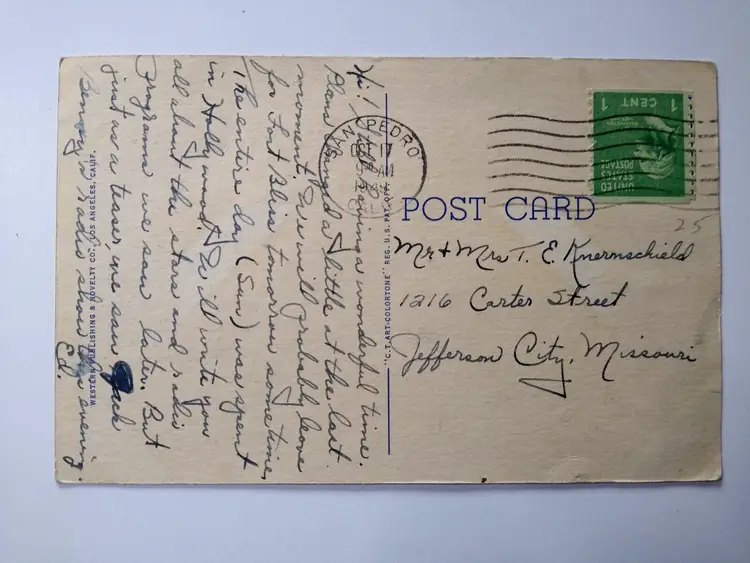 Hi! Still having a wonderful time.
Plans changed a little at the last
moment. We will probably leave
for Fort Bliss tomorrow sometime.
The entire day (Sun) was spent
in Hollywood. Will write you
all about the stars and radio
programs we saw later. But
just as a teaser, we saw Jack
Benny's radio show this evening.
Ed.
WESTERN PUBLISHING & NOVELTY CO., LOS ANGELES, CALIF.
"C.T. ART-COLORTONE" REG. U.S. PAT. OFF.
SAN PEDRO
POST CARD
1 CENT 1
UNITED
STATES
POSTAGE
25
Mr + Mrs T. E. Knernschield
1216 Carter Street
Jefferson City, Missouri